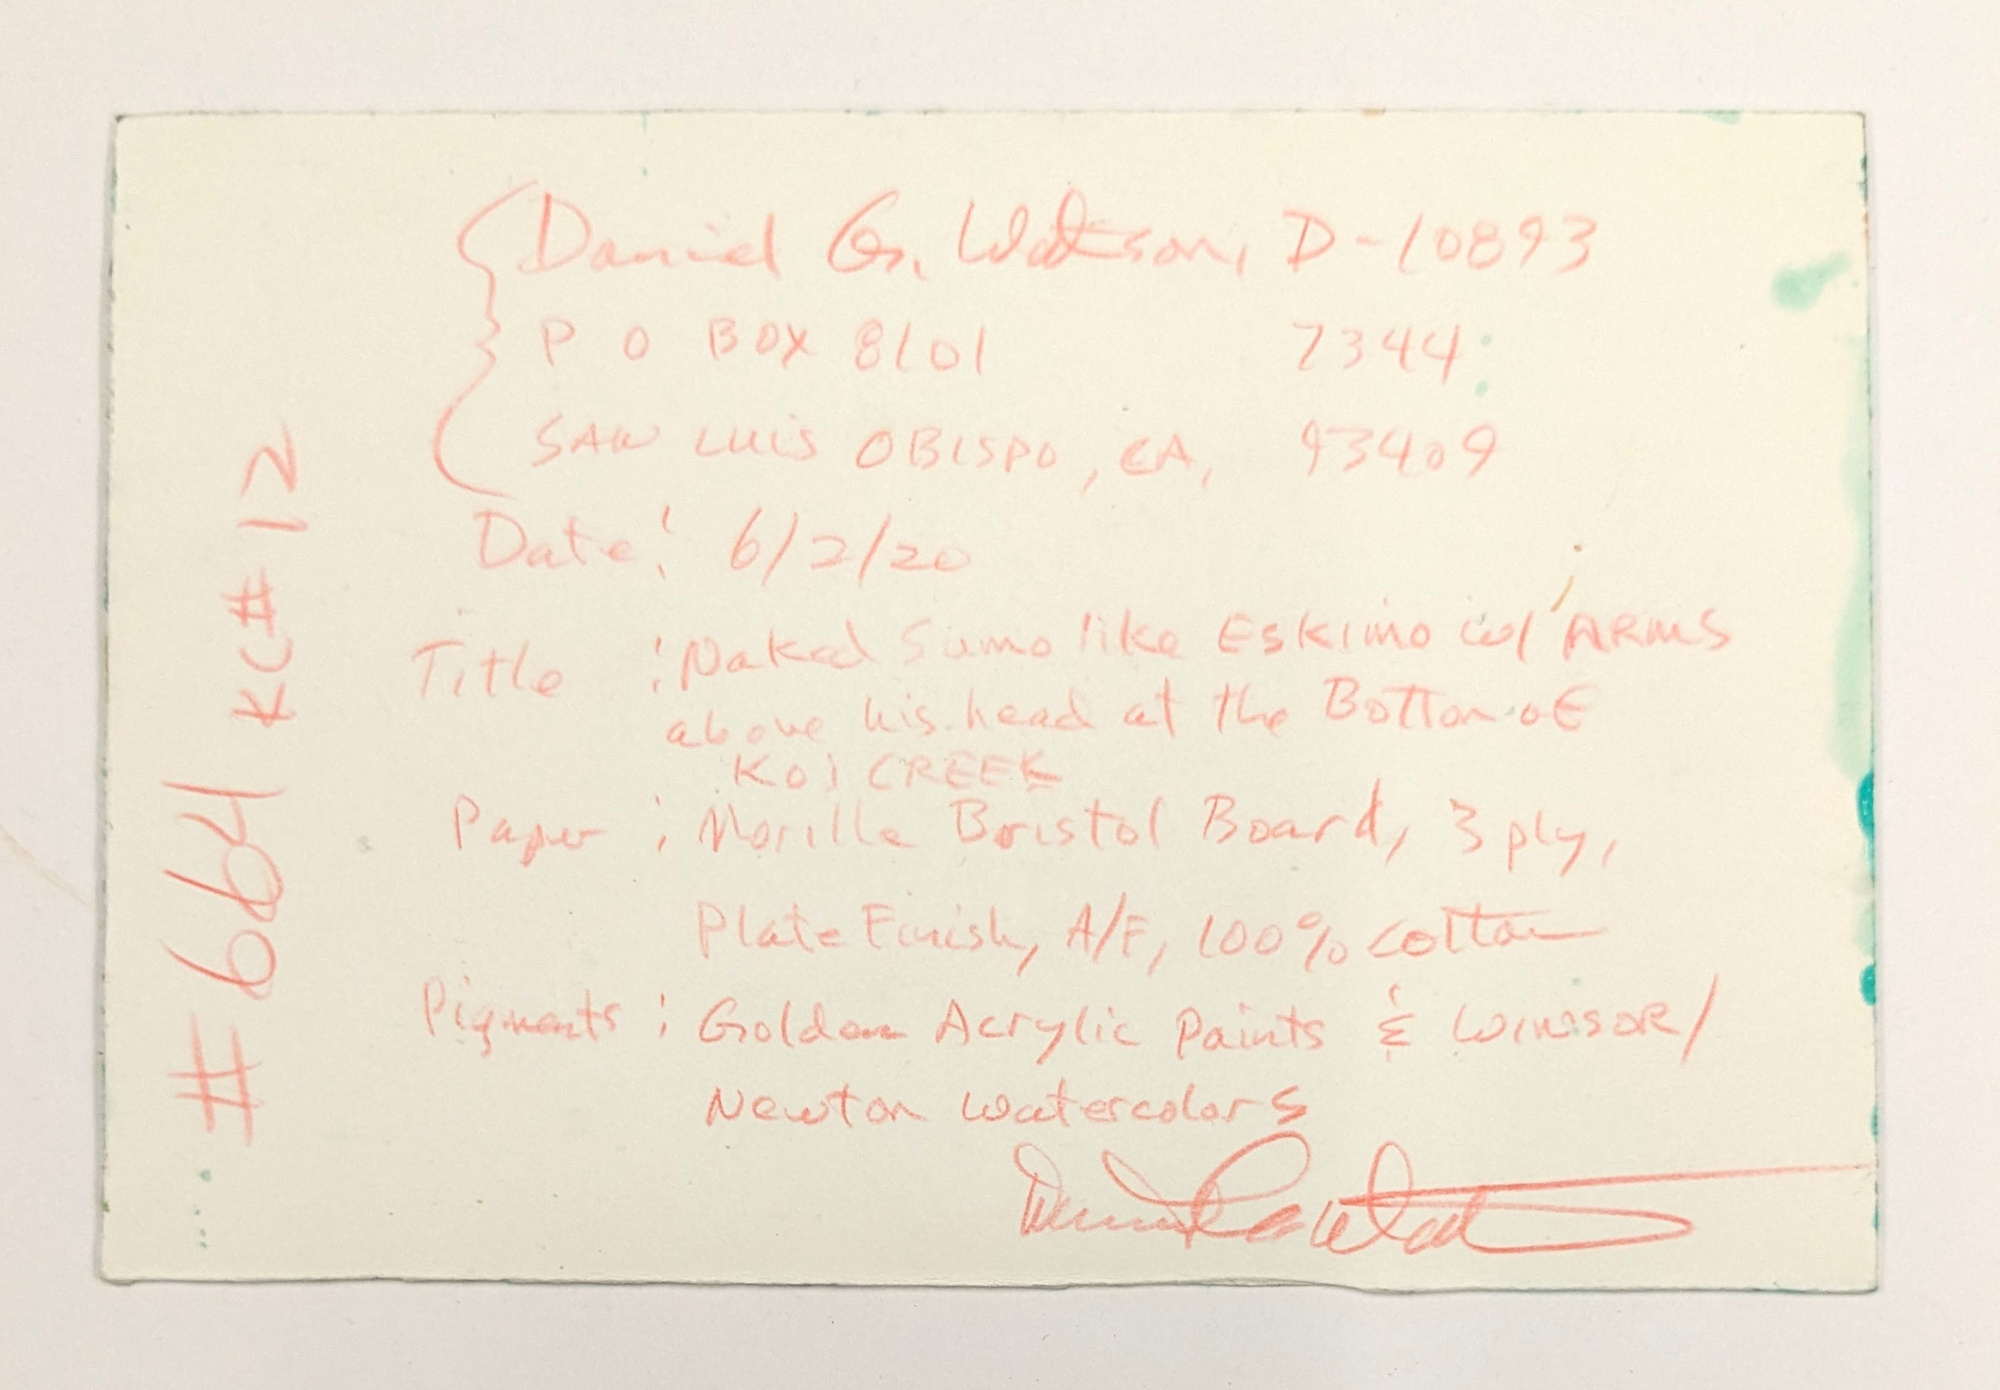 Daniel G. Watson, D-10893
P O BOX 8101 7344
SAN LUIS OBISPO, CA, 93409
Date: 6/2/20
Title : Naked Sumo like Eskimo w/ ARMS
above his head at the Bottom of
KOI CREEK
Paper : Morilla Bristol Board, 3 ply,
Plate Finish, A/F, 100% cotton
Pigments : Golden Acrylic Paints & WINSOR/
Newton Watercolors
#664 KC#12